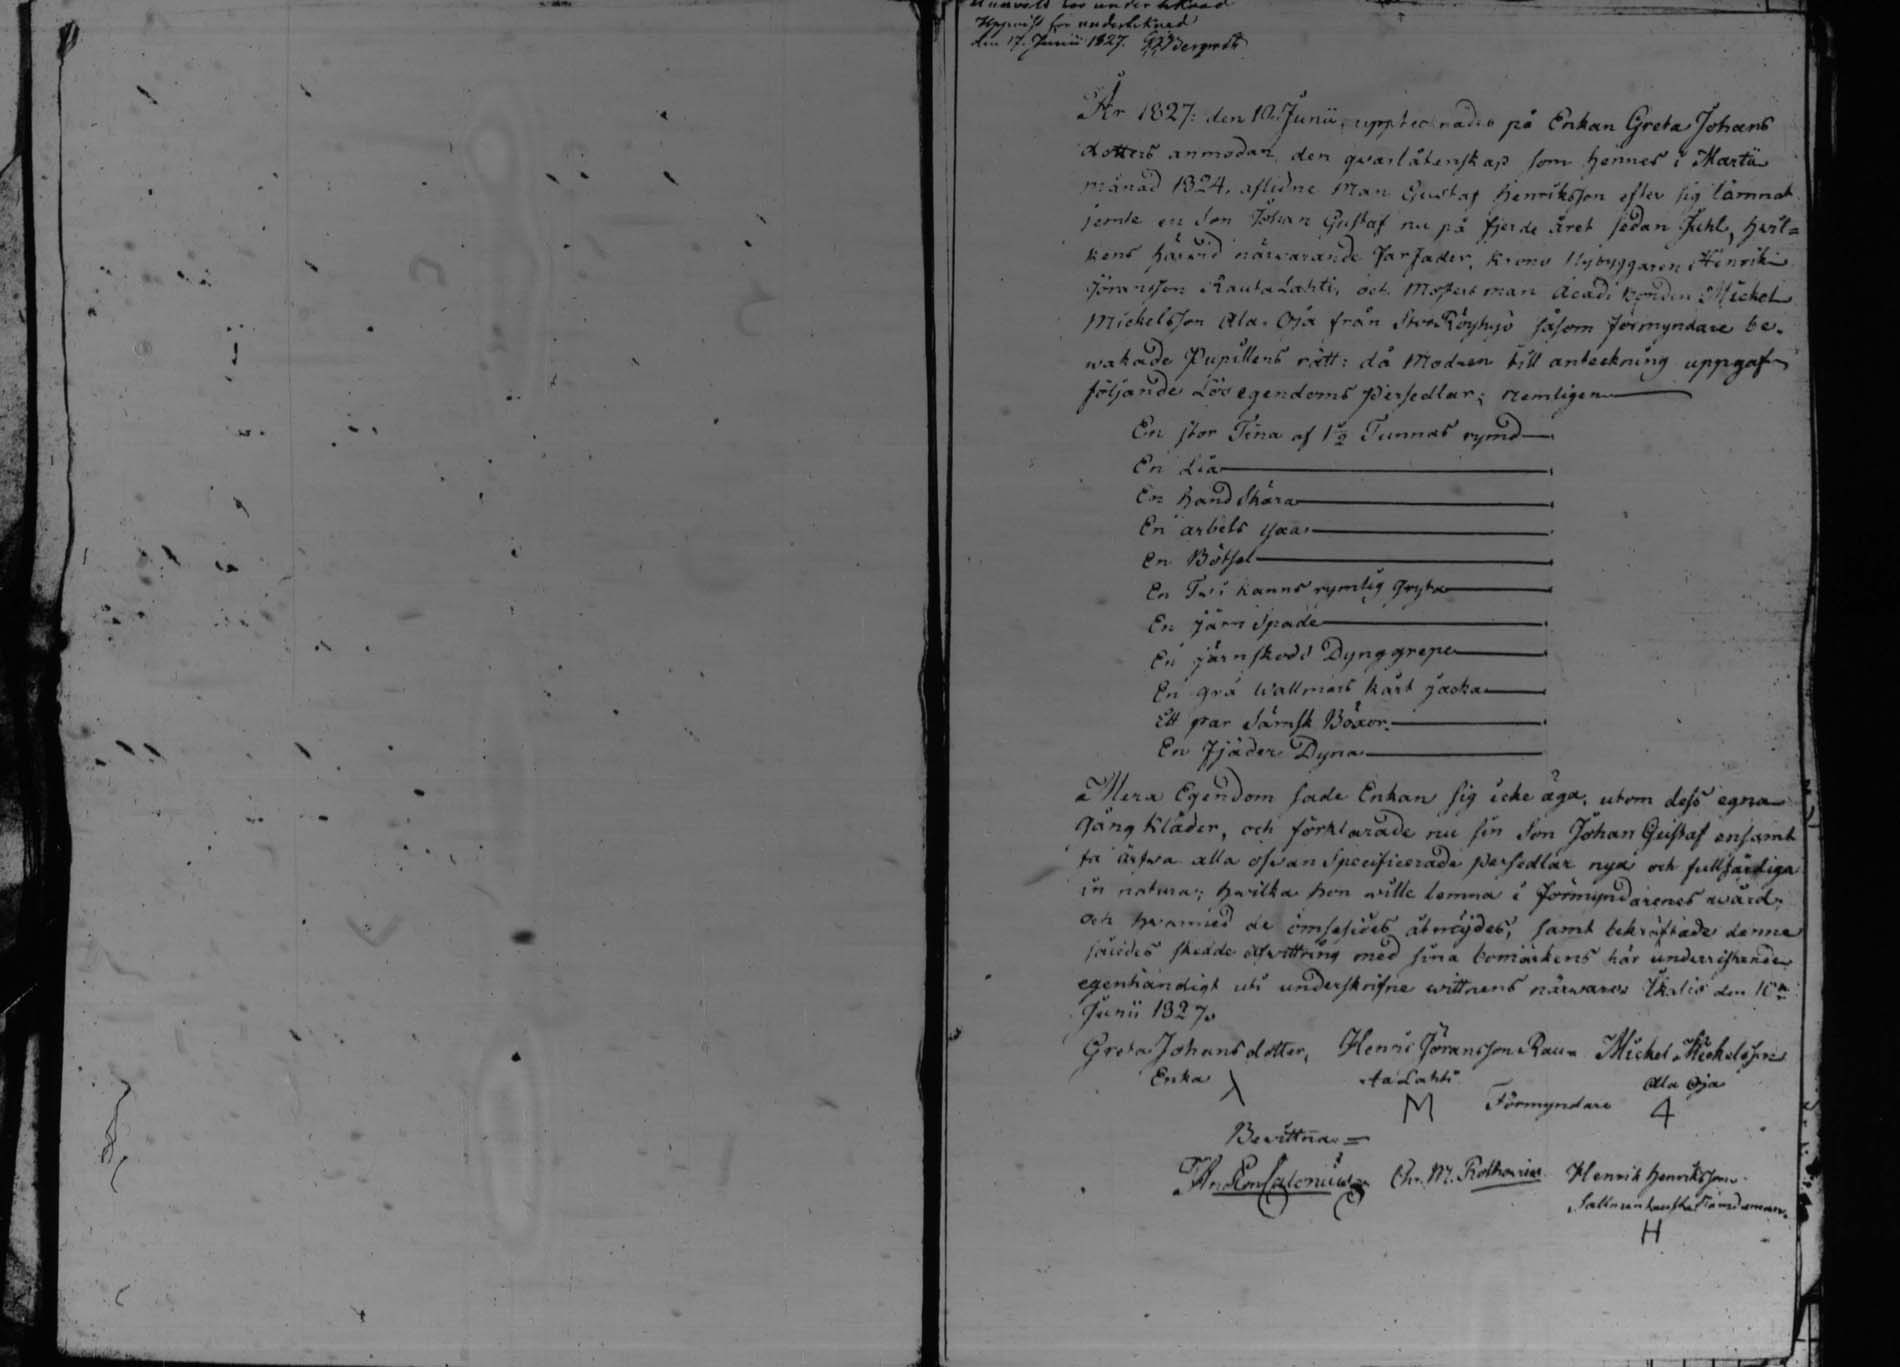 Uppvist för underteknad
den 17. Junii 1827.
År 1827: den 10. Junii, upptecknades på Enkan Greta Johans
dotters anmodan, den qvarlåtenskap som hennes i Martii
månad 1824. aflidne Man Gustaf Henriksson efter sig lämnat
jemte en Son Johan Gustaf nu på fjerde året sedan Juhl, hwil=
kens härwid närwarande Farfader, Krono Nybyggaren Henrik
Jöransson Rautalahti, och Mosters man Bonden Mickel
Mickelsson Ala-Oja från såsom förmyndare be-
wakade Pupillens rätt: då Modren till anteckning uppgaf
följande Lös egendoms Persedlar; nemligen
En stor Tina af 1½ Tunnas rymd
En Lia
En hand Skära
En arbets yxa
En Bötsel
En Twå kanns rymlig gryta
En järn Spade
En järnskodd Dynggrepe
En grå Wallmars kårt jacka
Ett par Sämsk Böxor
En Fjäder Dyna
Mera Egendom sade Enkan sig icke äga, utom dess egna
Gång Kläder, och förklarade nu sin Son Johan Gustaf ensamt
få ärfwa alla ofwan Specificerade persedlar nya och fullfärdiga
in natura; hwilka hon wille lemna i förmyndarenes wård;
och hwarmed de ömsesides åtnöjdes, samt bekräftade denne
således skedde afwittring med sina bomärkens här underristande
egenhändigt uti underskrifne wittnens närwaro den 10de
Junii 1827.
Greta Johansdotter, Henric Jöransson Rau- Mickel Mickelsson
Enka talahti Ala Oja
M Förmyndare 4
Bewittna =
And Em Salonius Chr. M. Henrik Henriksson
Nämndeman.
H